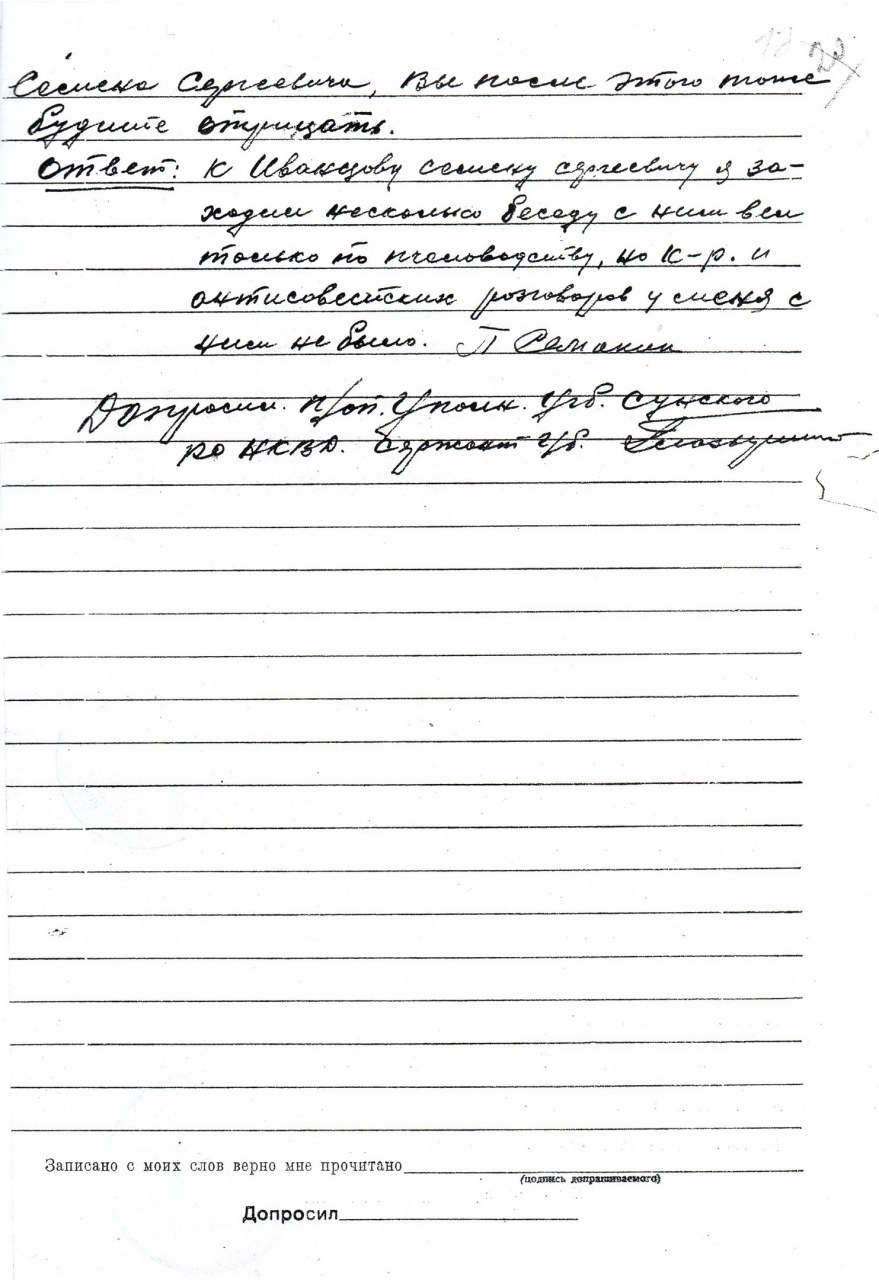 Семена Сергеевича, Вы после этого тоже
будите отрицать.
Ответ: К Иванцову Семену Сергеевичу я за-
ходил несколько беседу с ним вел
только по пчеловодству, но К-р. и
антисоветских розговоров у меня с
ним не было. П Семакин
Допросил. п/оп. Уполн. Угб. Сунского
РО НКВД. Сержант г/б.
Записано с моих слов верно мне прочитано
(подпись допрашиваемого)
Допросил